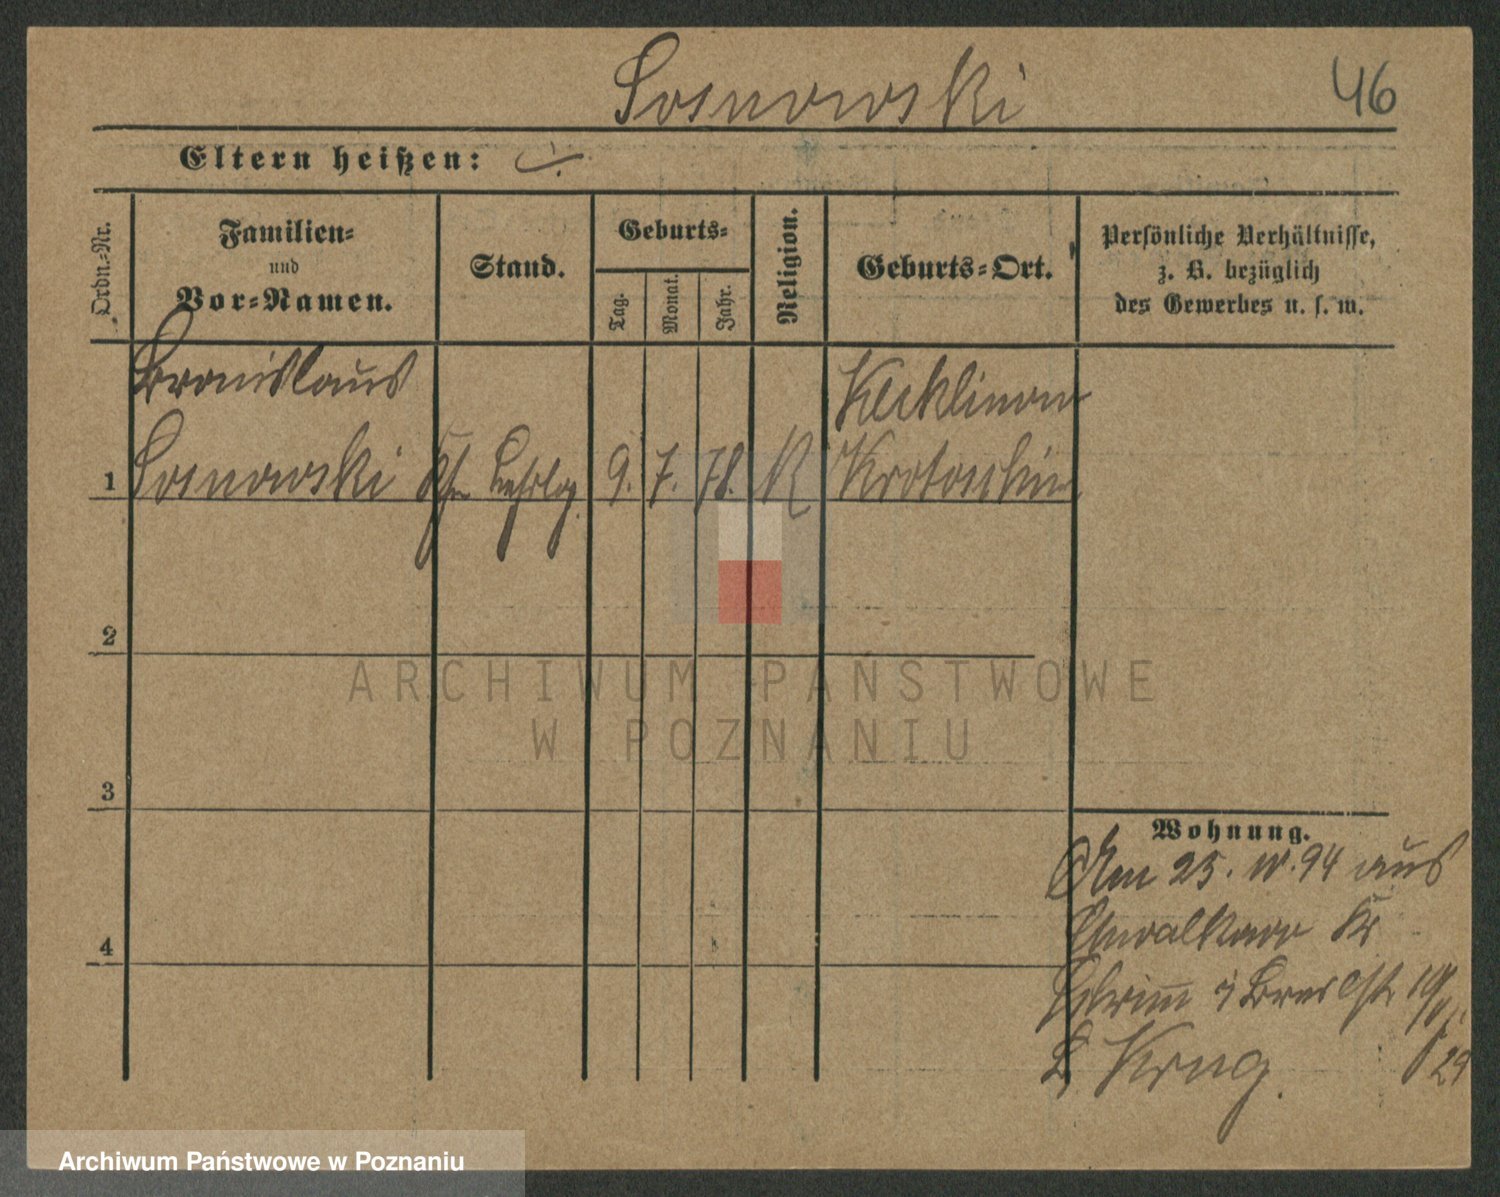 Sosnowski 46
Eltern heißen: ./.
Ordn.=Nr.
Familien=
und
Vor=Namen.
Stand.
Geburts=
Tag.
Monat.
Jahr.
Religion.
Geburts=Ort.
Persönliche Verhältnisse,
z. B. bezüglich
des Gewerbes u. s. w.
Bronislaus
1 Sosnowski 9. 7. 78. K Krotoschin
2
3
4
Wohnung.
Am 25. 10. 94 aus
Chwalkowo Kr
Schrim
Krug.
29
ARCHIWUM PAŃSTWOWE
W POZNANIU
Archiwum Państwowe w Poznaniu